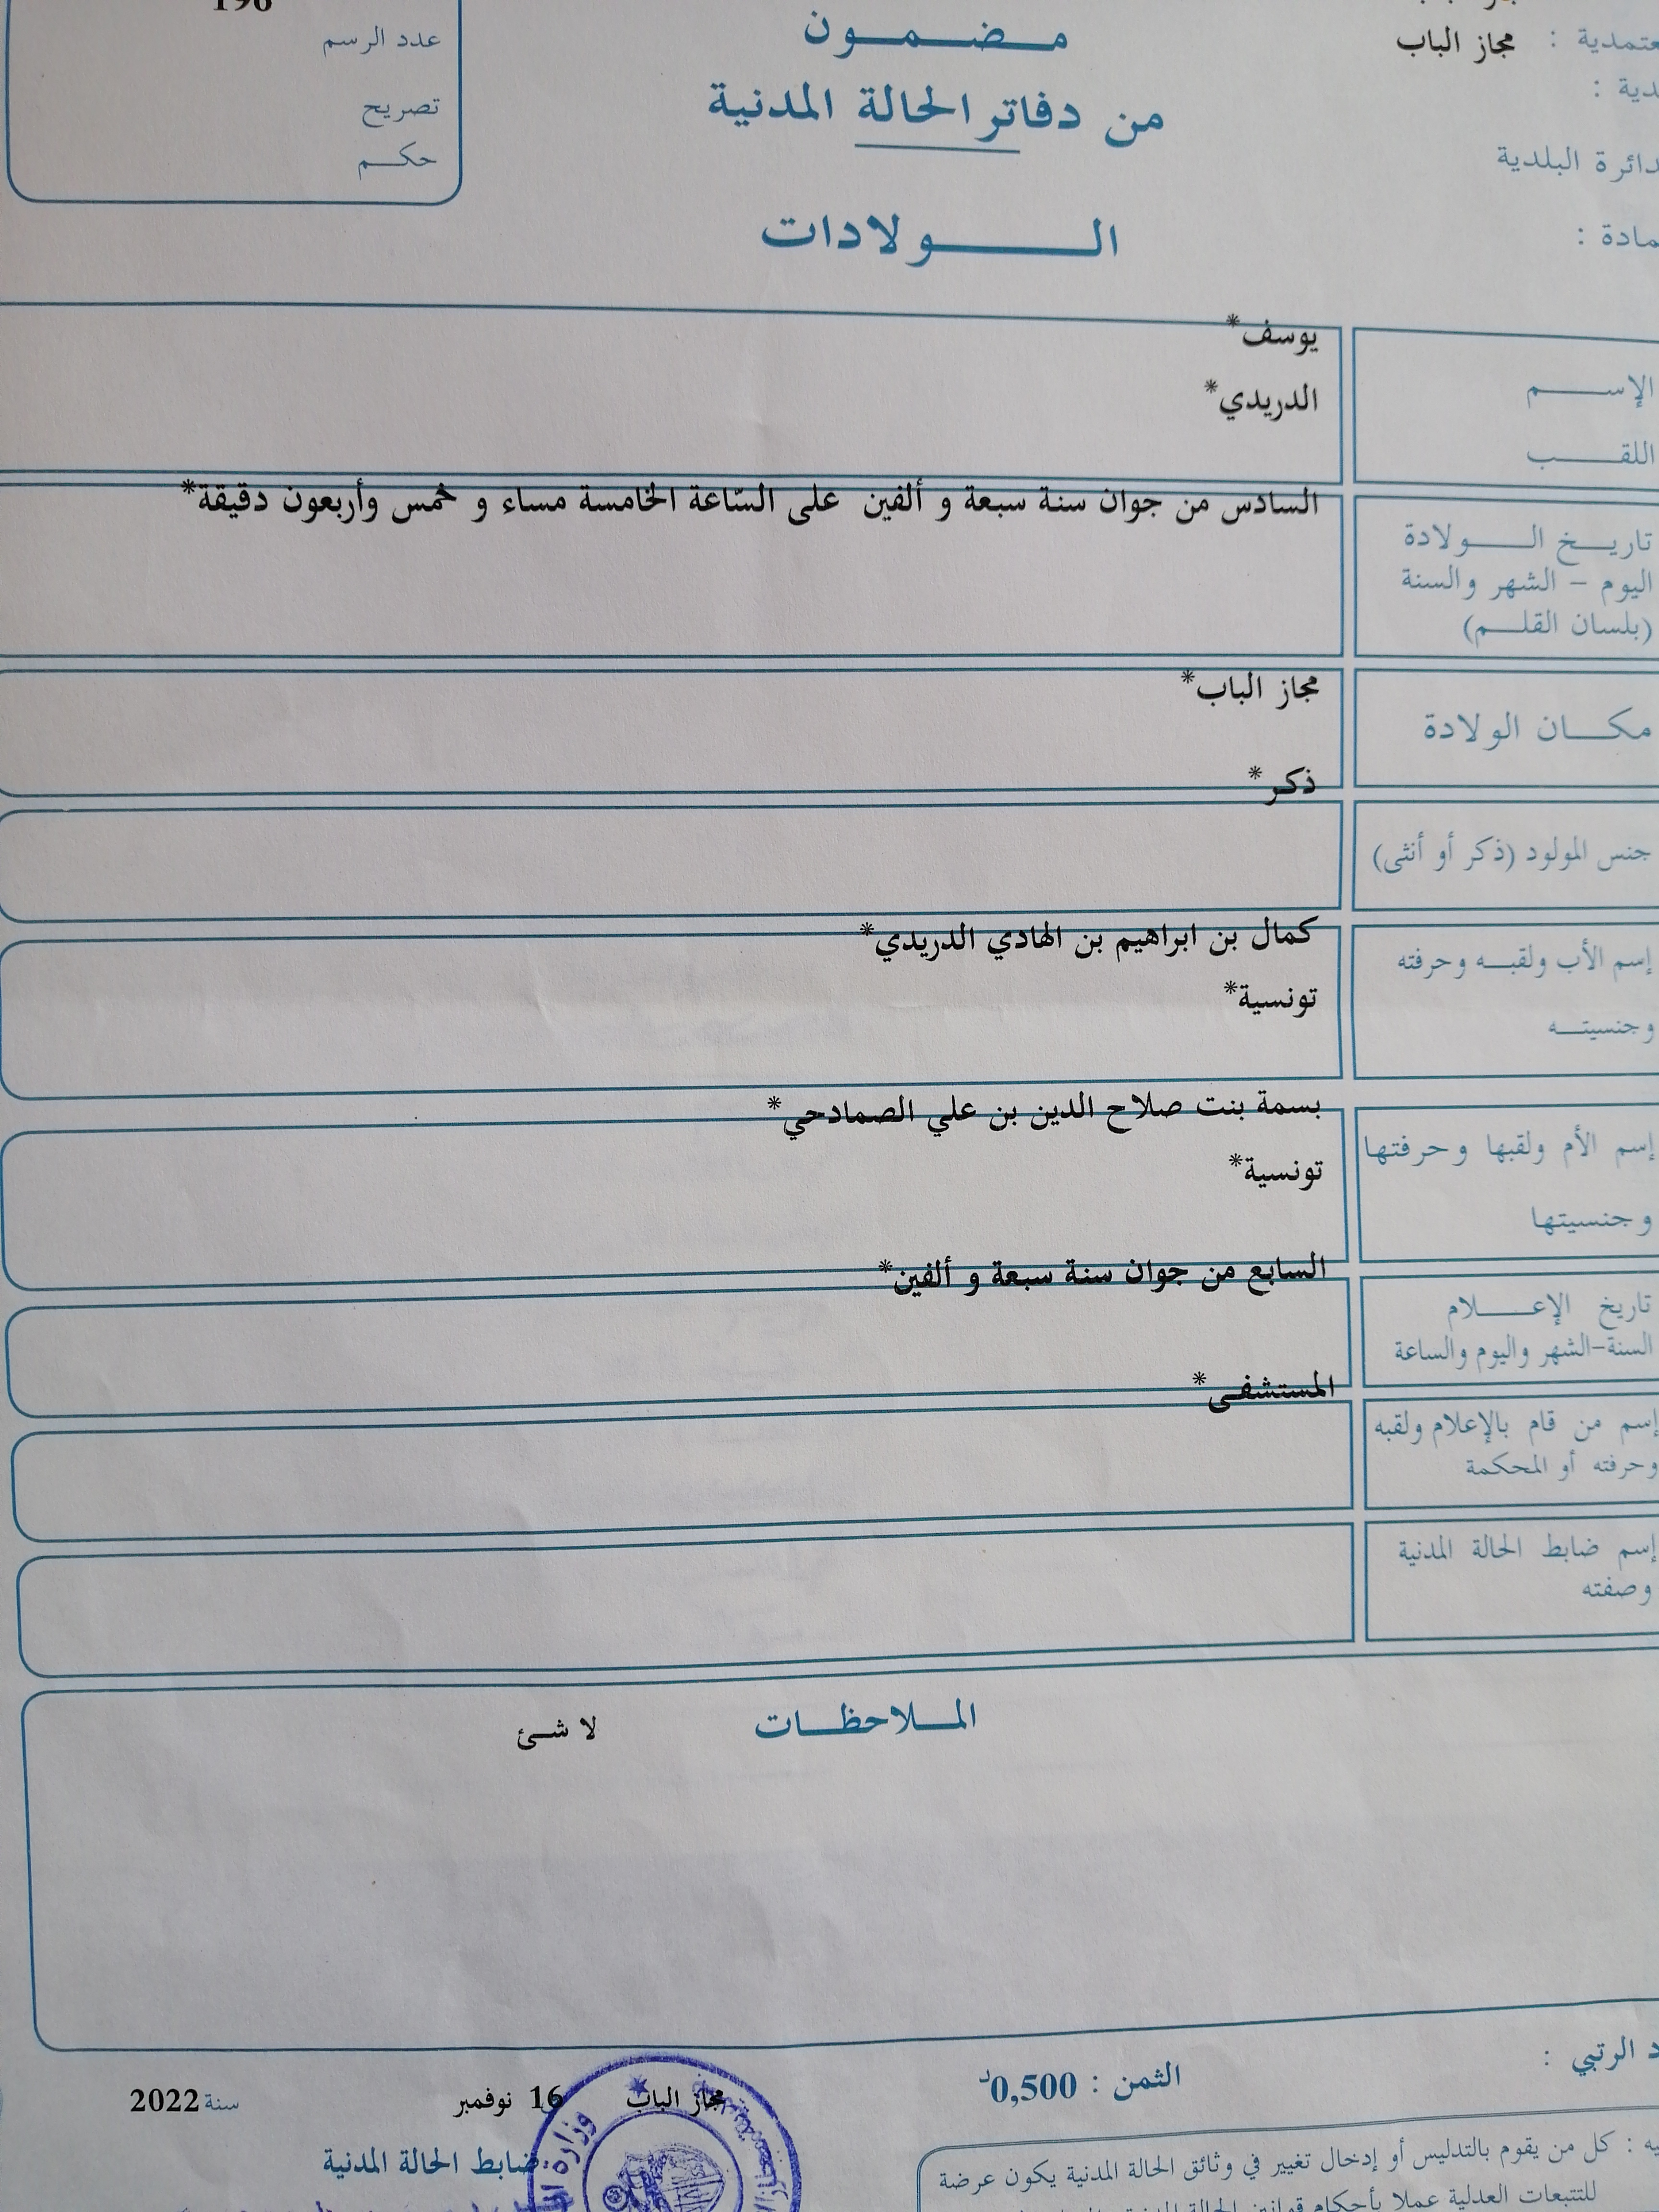 مضمون
من دفاتر الحالة المدنية
الولادات
معتمدية : مجاز الباب
دائرة البلدية
196
عدد الرسم
تصريح
حكم
الإسم
يوسف*
اللقب
الدريدي*
تاريخ الولادة
اليوم - الشهر والسنة
(بلسان القلم)
السادس من جوان سنة سبعة و ألفين على السّاعة الخامسة مساء و خمس وأربعون دقيقة*
مكان الولادة
مجاز الباب*
جنس المولود (ذكر أو أنثى)
ذكر*
إسم الأب ولقبه وحرفته
كمال بن ابراهيم بن الهادي الدريدي*
وجنسيته
تونسية*
إسم الأم ولقبها وحرفتها
بسمة بنت صلاح الدين بن علي الصمادحي*
وجنسيتها
تونسية*
تاريخ الإعلام
السنة-الشهر واليوم والساعة
السابع من جوان سنة سبعة و ألفين*
إسم من قام بالإعلام ولقبه
وحرفته أو المحكمة
المستشفى*
إسم ضابط الحالة المدنية
وصفته
الملاحظات
لا شئ
الرتبي :
الثمن : 0,500د
مجاز الباب 16 نوفمبر سنة 2022
ضابط الحالة المدنية
وزارة
كل من يقوم بالتدليس أو إدخال تغيير في وثائق الحالة المدنية يكون عرضة
للتتبعات العدلية عملا بأحكام قوانين الحالة المدنية